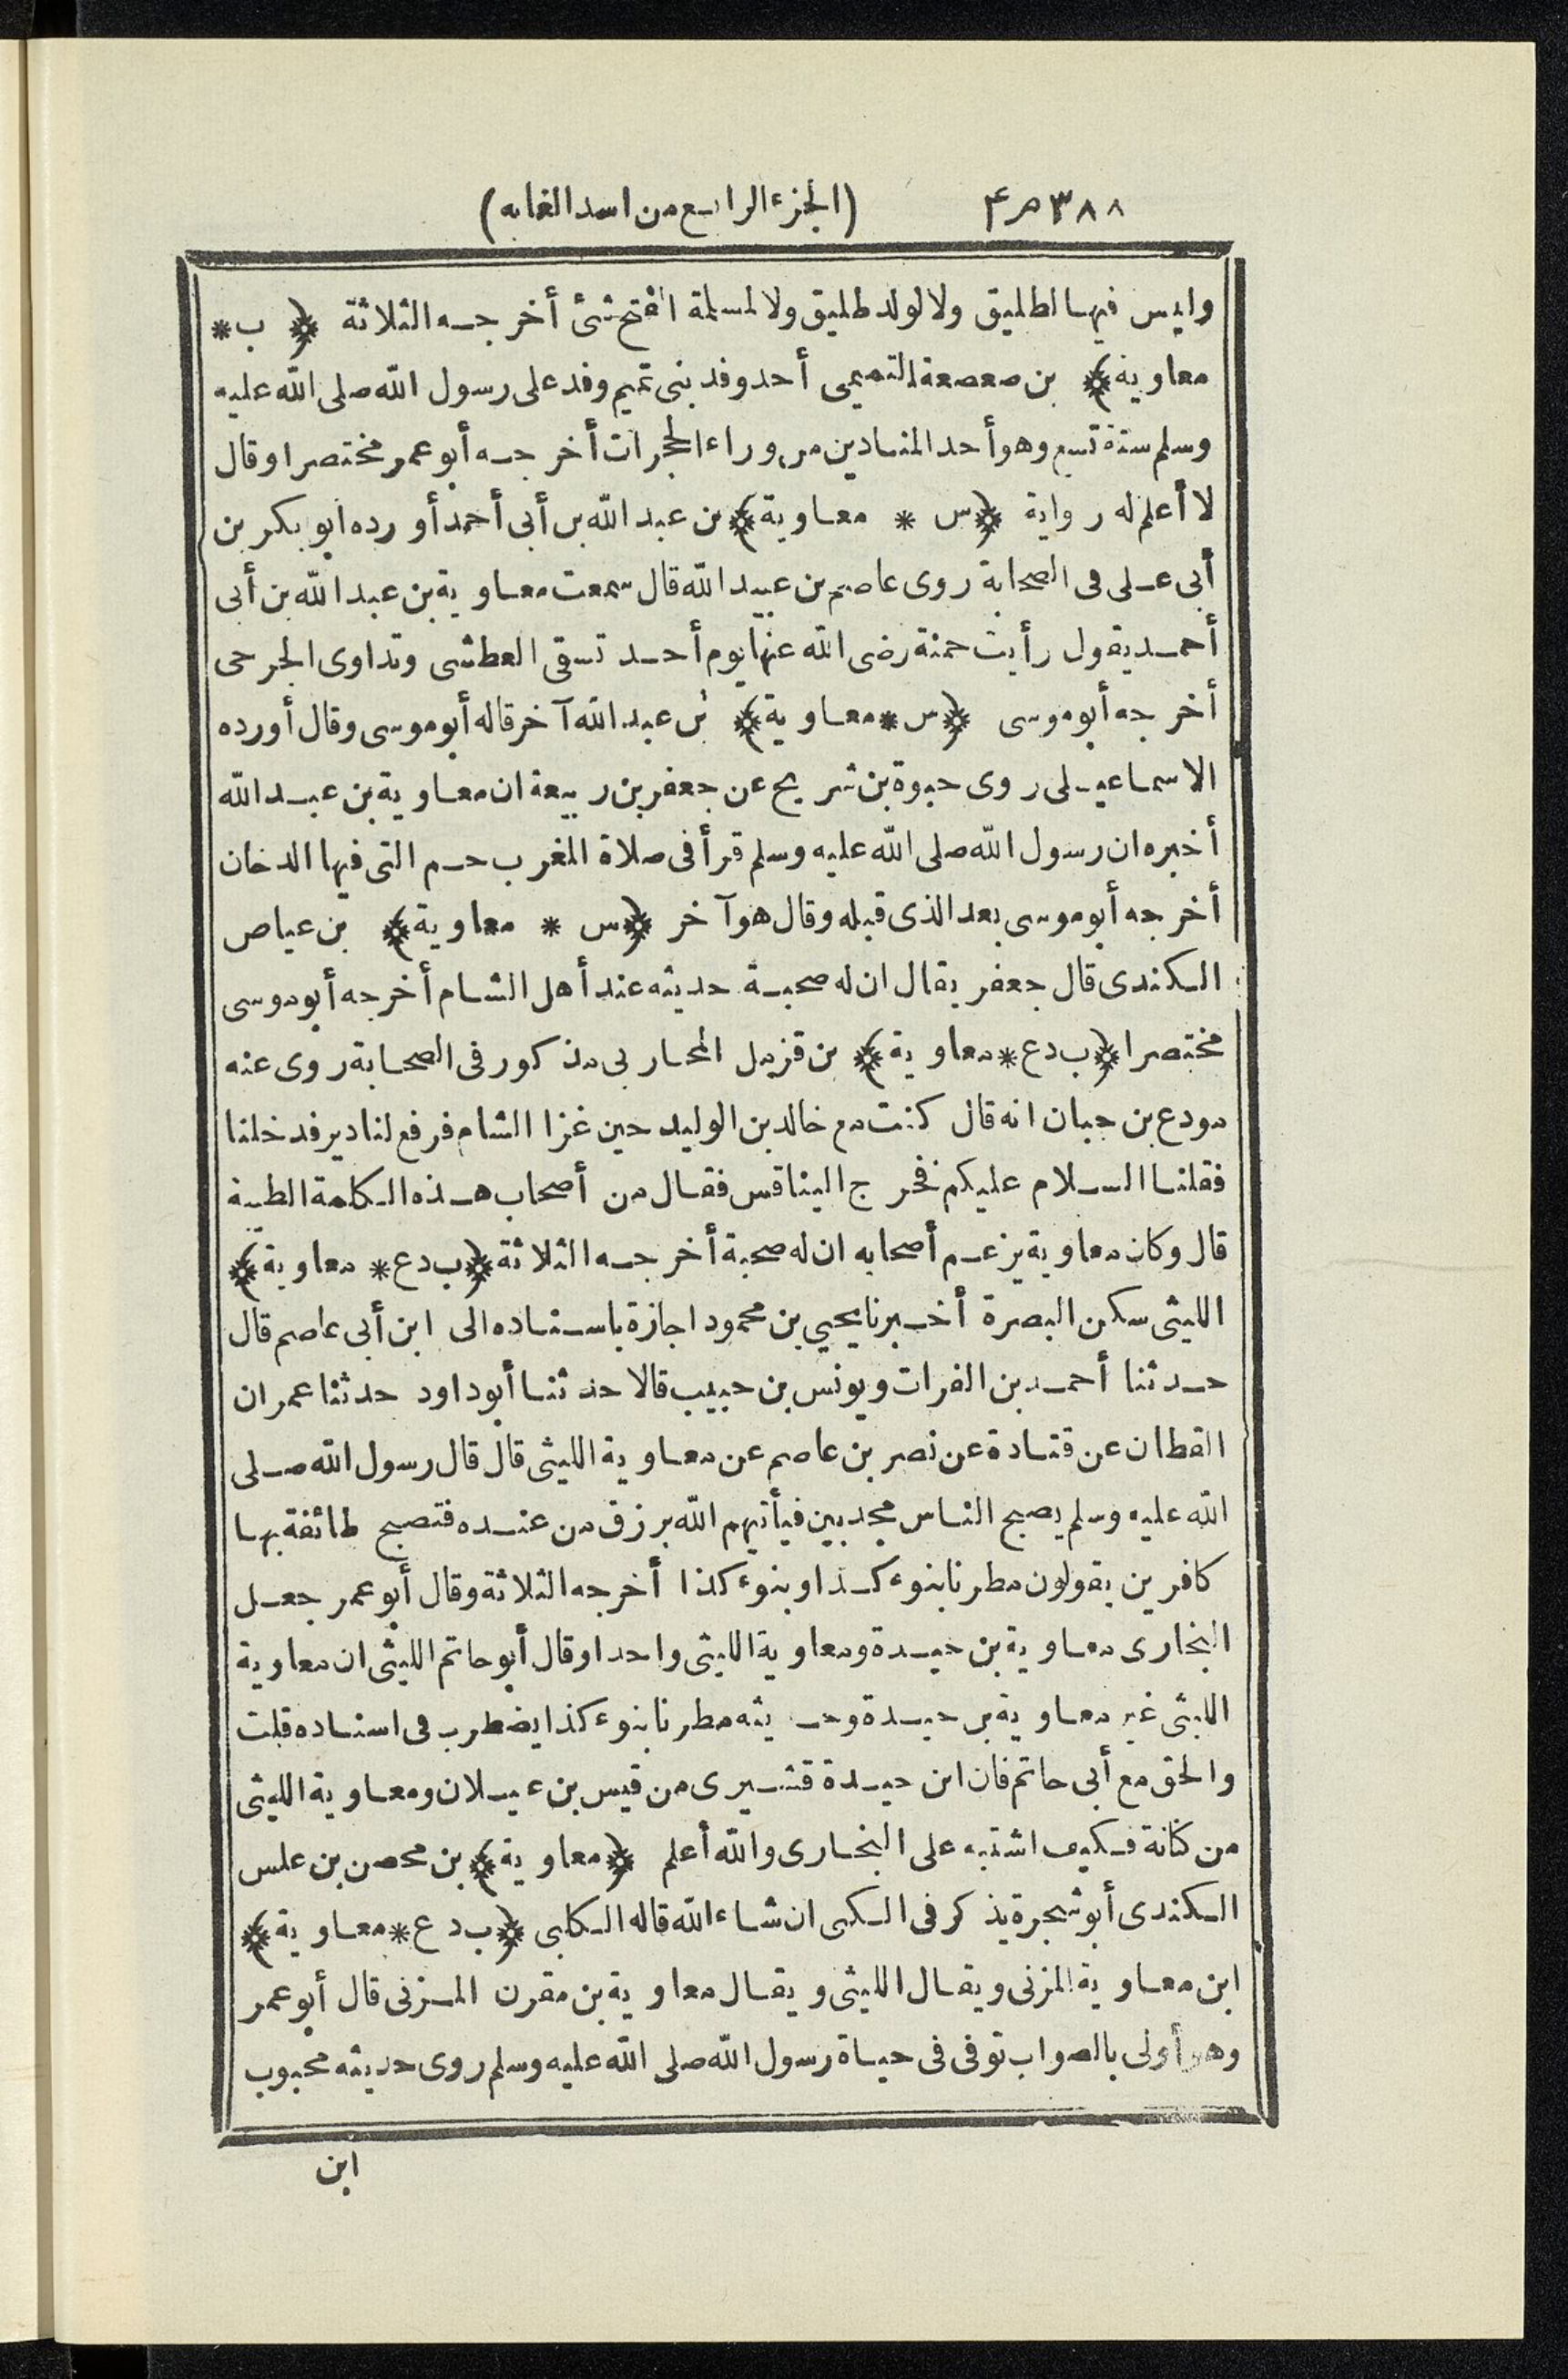 ٣٨٨ ص ٤ (الجزء الرابع من اسد الغابه)
وليس فيها لطليق ولا لولد طليق ولا لمسلمة الفتح شئ أخرجه الثلاثة ﴿ ب *
معاوية﴾ بن صعصعة التميمى أحد وفد بنى تميم وفد على رسول الله صلى الله عليه
وسلم سنة تسع وهو أحد المنادين من وراء الحجرات أخرجه أبو عمر مختصرا وقال
لا أعلم له رواية ﴿س * معاوية﴾ بن عبد الله بن أبى أحمد أورده أبو بكر بن
أبى على فى الصحابة روى عاصم بن عبيد الله قال سمعت معاوية بن عبد الله بن أبى
أحمد يقول رأيت حمنة رضى الله عنها يوم أحد تسقى العطشى وتداوى الجرحى
أخرجه أبو موسى ﴿س * معاوية﴾ بن عبد الله آخر قاله أبو موسى وقال أورده
الاسماعيلى روى حيوة بن شريح عن جعفر بن ربيعة ان معاوية بن عبد الله
أخبره ان رسول الله صلى الله عليه وسلم قرأ فى صلاة المغرب حم التى فيها الدخان
أخرجه أبو موسى بعد الذى قبله وقال هو آخر ﴿س * معاوية﴾ بن عياض
الكندى قال جعفر يقال ان له صحبة حديثه عند أهل الشام أخرجه أبو موسى
مختصرا ﴿ب د ع * معاوية﴾ بن قزمل المحاربى مذكور فى الصحابة روى عنه
مودع بن حبان انه قال كنت مع خالد بن الوليد حين غزا الشام فرفع لنا دير فدخلنا
فقلنا السلام عليكم فخرج الينا قس فقال من أصحاب هذه الكلمة الطيبة
قال وكان معاوية يزعم أصحابه ان له صحبة أخرجه الثلاثة ﴿ب د ع * معاوية﴾
الليثى سكن البصرة أخبرنا يحيي بن محمود اجازة باسناده الى ابن أبى عاصم قال
حدثنا أحمد بن الفرات ويونس بن حبيب قالا حدثنا أبو داود حدثنا عمران
القطان عن قتادة عن نصر بن عاصم عن معاوية الليثى قال قال رسول الله صلى
الله عليه وسلم يصبح الناس مجدبين فيأتيهم الله برزق من عنده فتصبح طائفة بها
كافرين يقولون مطرنا بنوء كذا وبنوء كذا أخرجه الثلاثة وقال أبو عمر جعل
البخارى معاوية بن حيدة ومعاوية الليثى واحدا وقال أبو حاتم الليثى ان معاوية
الليثى غير معاوية بن حيدة وحديثه مطرنا بنوء كذا يضطرب فى اسناده قلت
والحق مع أبى حاتم فان ابن حيدة قشيرى من قيس بن عيلان ومعاوية الليثى
من كنانة فكيف اشتبه على البخارى والله أعلم ﴿معاوية﴾ بن محصن بن علس
الكندى أبو شجرة يذكر فى الكنى ان شاء الله قاله الكلبى ﴿ب د ع * معاوية﴾
ابن معاوية المزنى ويقال الليثى ويقال معاوية بن مقرن المزنى قال أبو عمر
وهو أولى بالصواب توفى فى حياة رسول الله صلى الله عليه وسلم روى حديثه محبوب
ابن